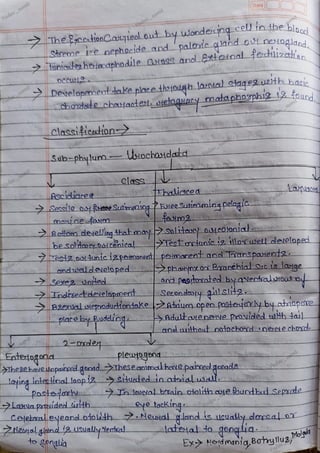 → The Excration Carrried out by Wondering cell in the blood
Streme i-e nephocide and paloric gland or nerogland.
→ This is hermaphodile Cross and External fectilization
occurs.
→ Development take place through larval stages with basic
chordate characters, metamorphosis is found.
Classification→
Sub-phylum — Urochordata
Class
Ascidiacea
→ Sessile or free Swimming
marine form
→ Bottom dwelling that may
be solitary or colonical
→ Test or tunic is permanent
and well developed
→ Sexes united
→ Indirect development
→ Asexual reproduction take
place by Budding.
Thaliacea
→ Free Swimming pelagic
forms
→ Solitary or colonial.
→ Test or tunic is ill or well developed
permanent and Transparents.
→ pharynx or Branchial sac is large
and
Secondary gill slits.
→ Atrium open posteriorly by atriopore
→ Adult are never provided with tail
and without notochord, nerve chord.
Larvacea
2-order
Enterogona
→ These have unpaired gonad
laying intestinal loop is
posteriorly
→ Larva provided with
Cerebral eye and otolith
→ Neural gland is usually ventral
to ganglia
pleurogona
→ These animal have paired gonads
→ Situated in atrial wall.
→ In larval brain otolith are found but Seprate
eye lacking.
→ Neural gland is usually dorsal or
lateral to ganglia.
Ex→ Herdmania, Botryllus,